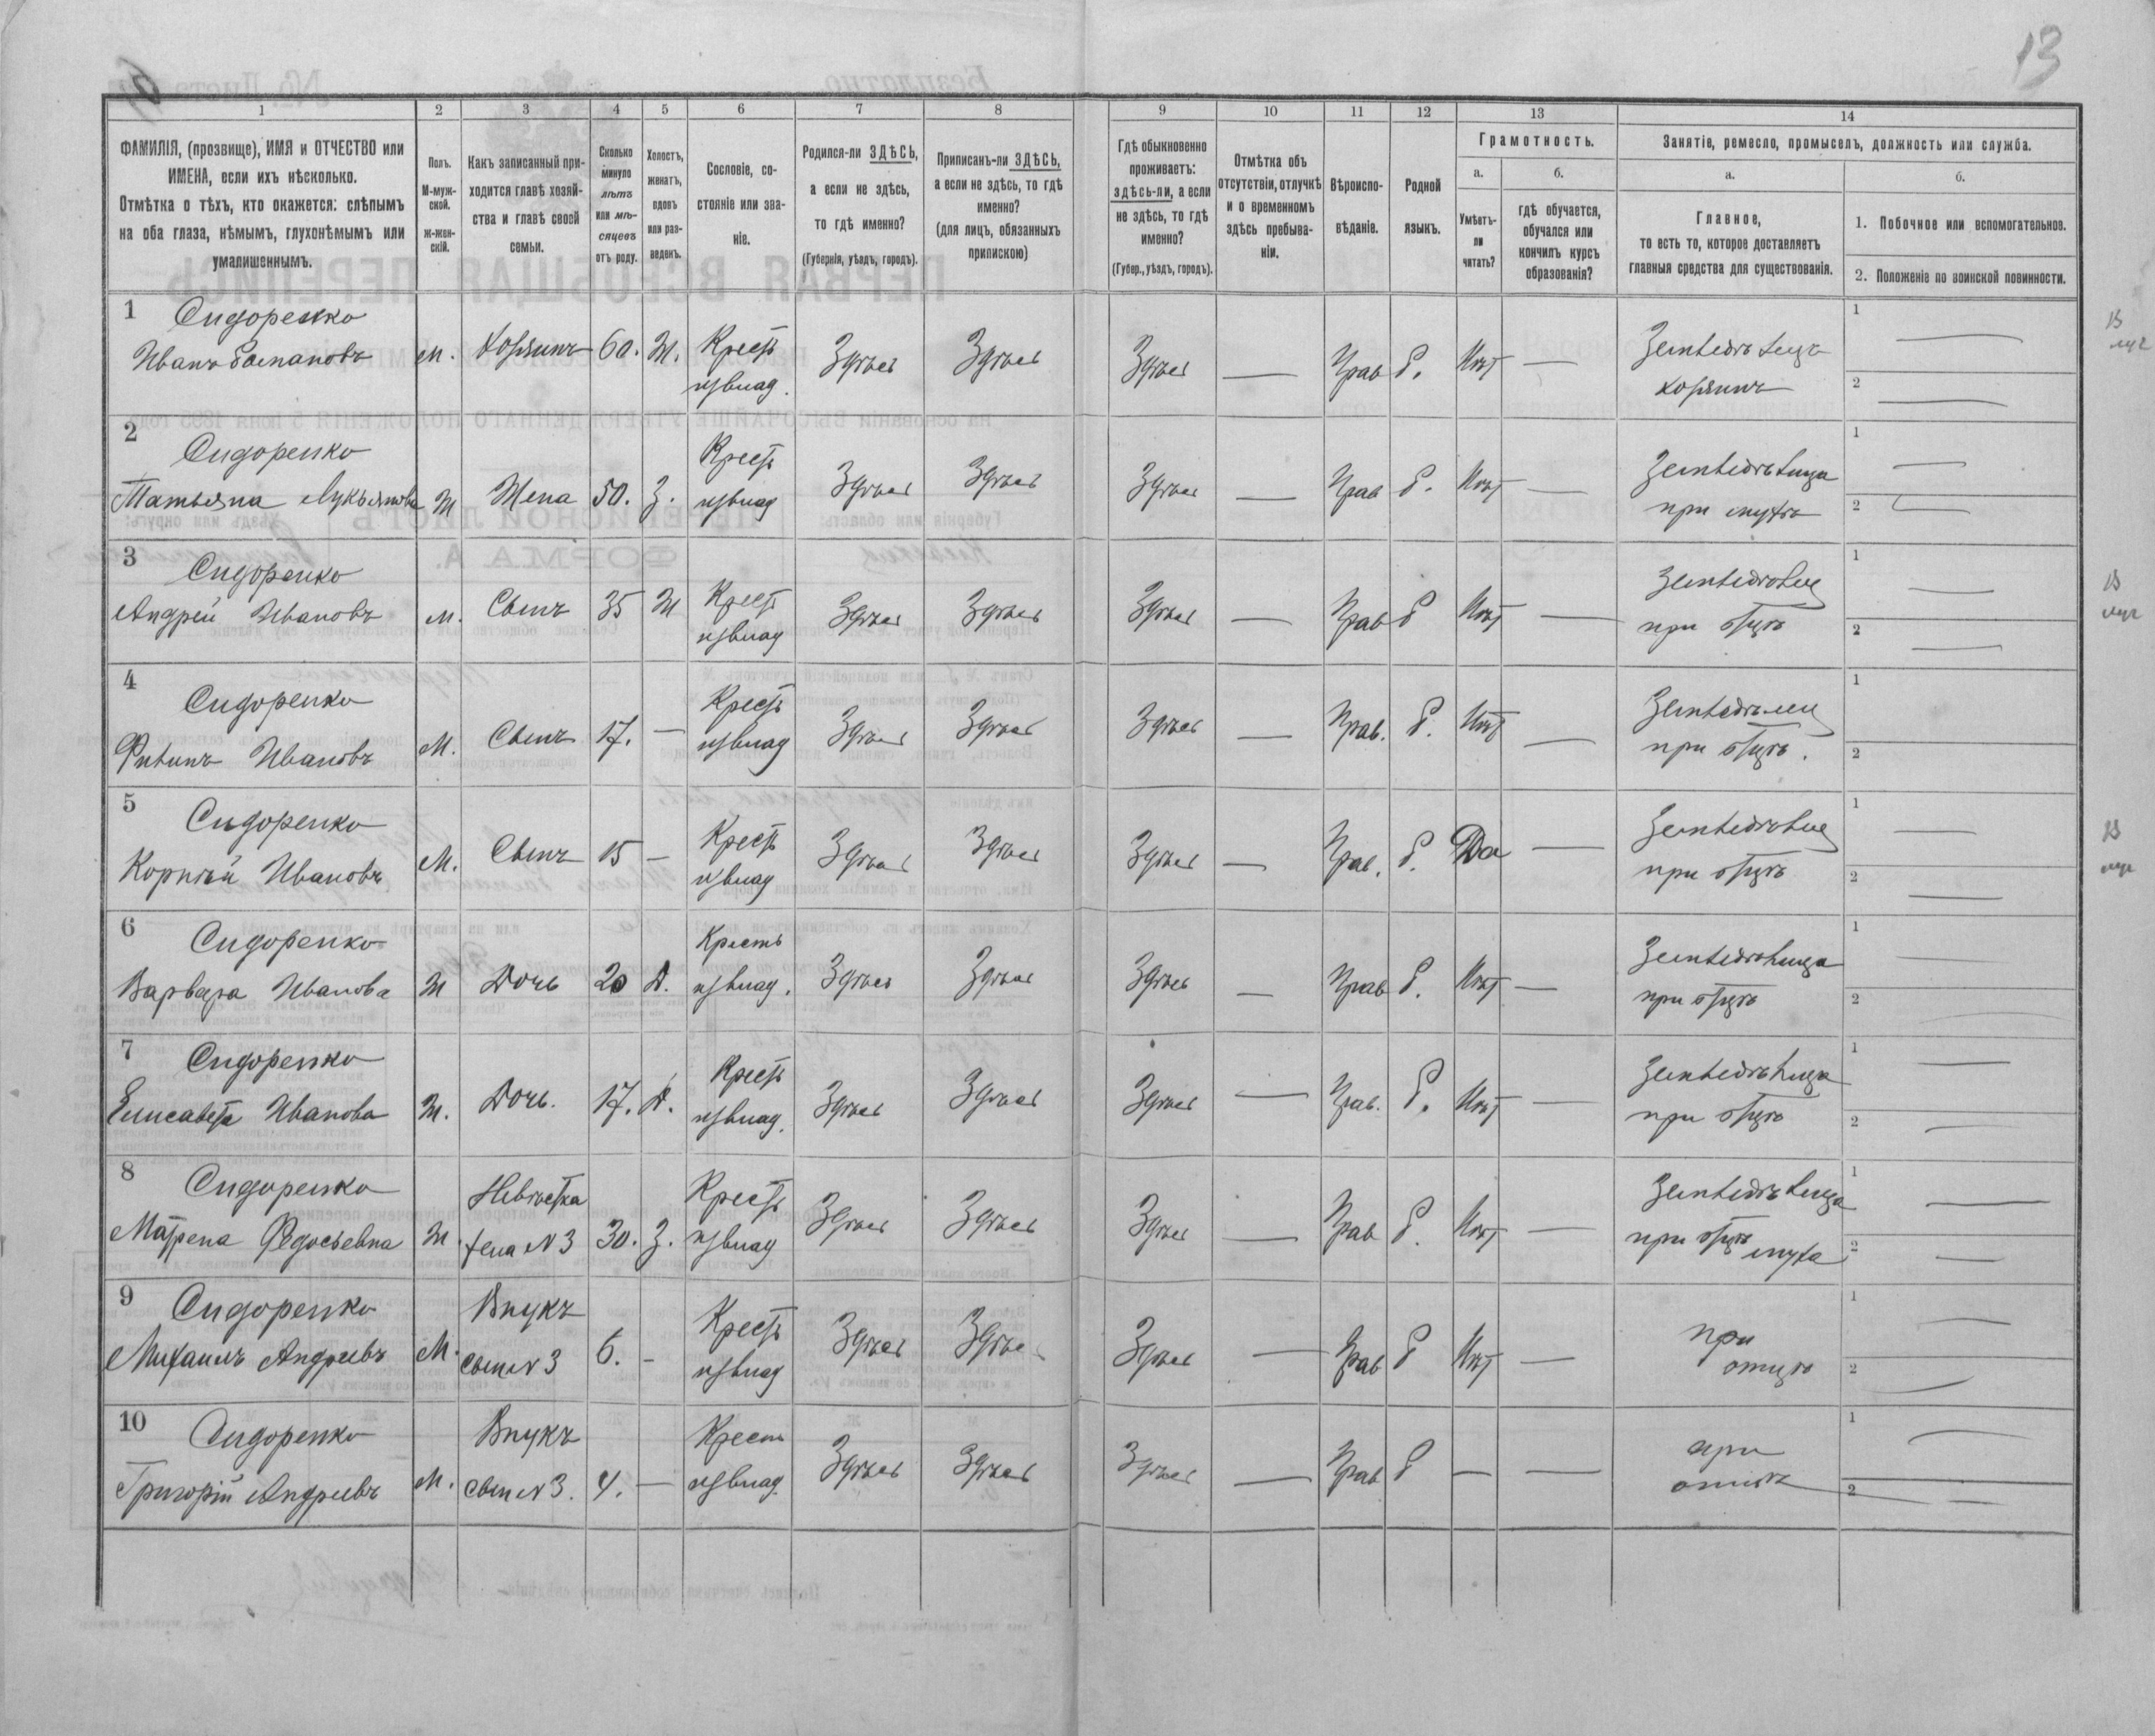 13
1 2 3 4 5 6 7 8 9 10 11 12 13 14
ФАМИЛІЯ, (прозвище), ИМЯ и ОТЧЕСТВО или
ИМЕНА, если ихъ нѣсколько.
Отмѣтка о тѣхъ, кто окажется: слѣпымъ
на оба глаза, нѣмымъ, глухонѣмымъ или
умалишеннымъ.
Полъ.
М-муж-
ской.
ж-жен-
скій.
Какъ записанный при-
ходится главѣ хозяй-
ства и главѣ своей
семьи.
Сколько
минуло
лѣтъ
или мѣ-
сяцевъ
отъ роду.
Холостъ,
женатъ,
вдовъ
или раз-
веденъ.
Сословіе, со-
стояніе или зва-
ніе.
Родился-ли ЗДѢСЬ,
а если не здѣсь,
то гдѣ именно?
(Губернія, уѣздъ, городъ).
Приписанъ-ли ЗДѢСЬ,
а если не здѣсь, то гдѣ
именно?
(для лицъ, обязанныхъ
припискою)
Гдѣ обыкновенно
проживаетъ:
здѣсь-ли, а если
не здѣсь, то гдѣ
именно?
(Губер., уѣздъ, городъ).
Отмѣтка объ
отсутствіи, отлучкѣ
и о временномъ
здѣсь пребыва-
ніи.
Вѣроиспо-
вѣданіе.
Родной
языкъ.
Грамотность.
а.
Умѣетъ-
ли
читать?
б.
гдѣ обучается,
обучался или
кончилъ курсъ
образованія?
Занятіе, ремесло, промыселъ, должность или служба.
а.
Главное,
то есть то, которое доставляетъ
главныя средства для существованія.
б.
1. Побочное или вспомогательное.
2. Положеніе по воинской повинности.
1 Сидоренко Крестъ Земледѣлецъ 1
Иванъ м. Хозяинъ 60. Ж. изъ влад. Здѣсь Здѣсь Здѣсь — Прав Р. Нѣт — хозяинъ 2
2 Сидоренко Крестъ Земледѣлица 1
Татьяна Лукьянова Ж Жена 50. З. изъ влад Здѣсь Здѣсь Здѣсь — Прав Р. Нѣт — при мужѣ 2
3 Сидоренко Крест Земледѣлец 1
Андрей Ивановъ м. Сынъ 35 Ж изъ влад Здѣсь Здѣсь Здѣсь — Прав Р Нѣт — при отцѣ 2
4 Сидоренко Крестъ Земледѣлец 1
Филипъ Ивановъ М. Сынъ 17. — изъ влад Здѣсь Здѣсь Здѣсь — Прав. Р. Нѣт — при отцѣ. 2
5 Сидоренко Крестъ Земледѣлец 1
Корнѣй Ивановъ М. Сынъ 15 — изъ влад Здѣсь Здѣсь Здѣсь — Прав. Р. Да — при отцѣ 2
6 Сидоренко Крестъ Земледѣлица 1
Варвара Иванова Ж Дочь 20 Д. изъ влад. Здѣсь Здѣсь Здѣсь — Прав Р. Нѣт — при отцѣ 2
7 Сидоренко Крестъ Земледѣлица 1
Елисавета Иванова Ж. Дочь. 17. Д. изъ влад. Здѣсь Здѣсь Здѣсь — Прав. Р. Нѣт — при отцѣ 2
8 Сидоренко Невѣстка Крестъ Земледѣлица 1
Матрена Федосьевна Ж. жена № 3 30. З. изъ влад Здѣсь Здѣсь Здѣсь — Прав Р. Нѣт — при отцѣ мужа 2
9 Сидоренко Внукъ Крестъ при 1
Михаилъ Андреевъ М. сын № 3 6. - изъ влад Здѣсь Здѣсь Здѣсь — Прав Р Нѣт — отцѣ 2
10 Сидоренко Внукъ Крестъ при 1
Григорій Андреевъ М. сын № 3. 4. — изъ влад. Здѣсь Здѣсь Здѣсь — Прав Р — — отцѣ 2